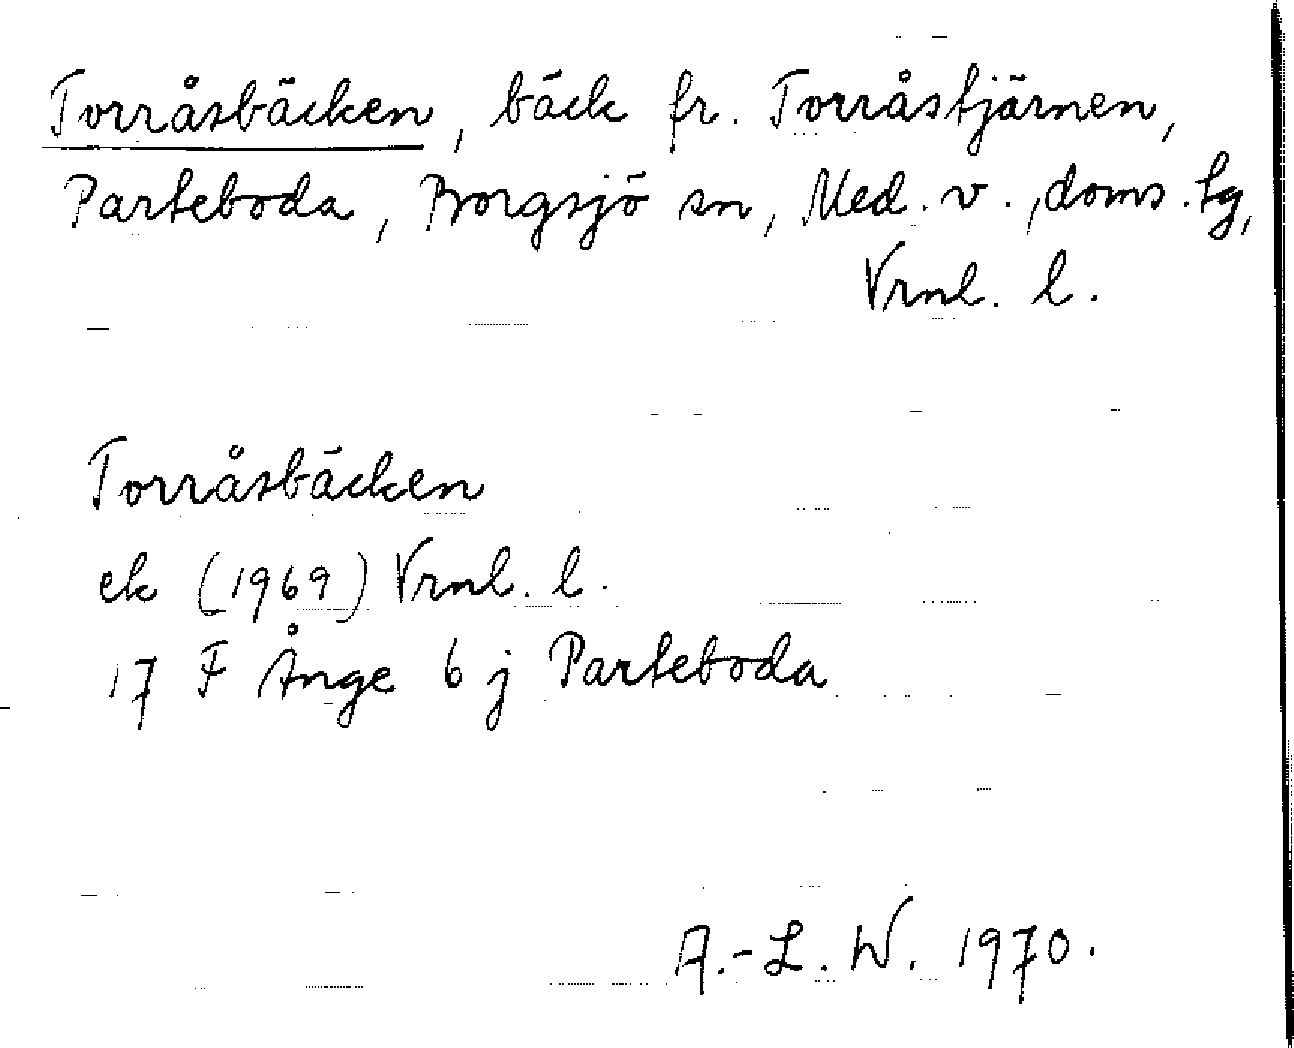 Torråsbäcken, bäck fr. Torråstjärnen,
Parteboda, Borgsjö sn, Med. v., doms. tg,
Vrnl. l.
Torråsbäcken
ek (1969) Vrnl. l.
17 F Ånge 6 j Parteboda
A.-L. W. 1970.